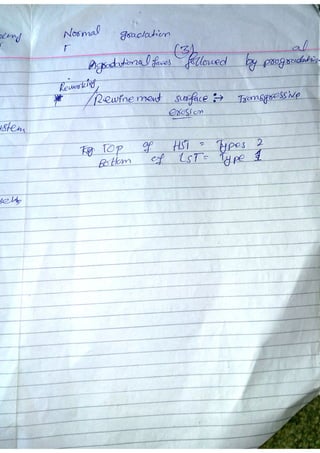 Normal gradation
(3) al
Agradational facies followed by progradation
Reworking
* / Rewinement surface :→ Transgressive
erosion
ystem
Eg: Top of HST = Types 2
Bottom of LST = Type 1